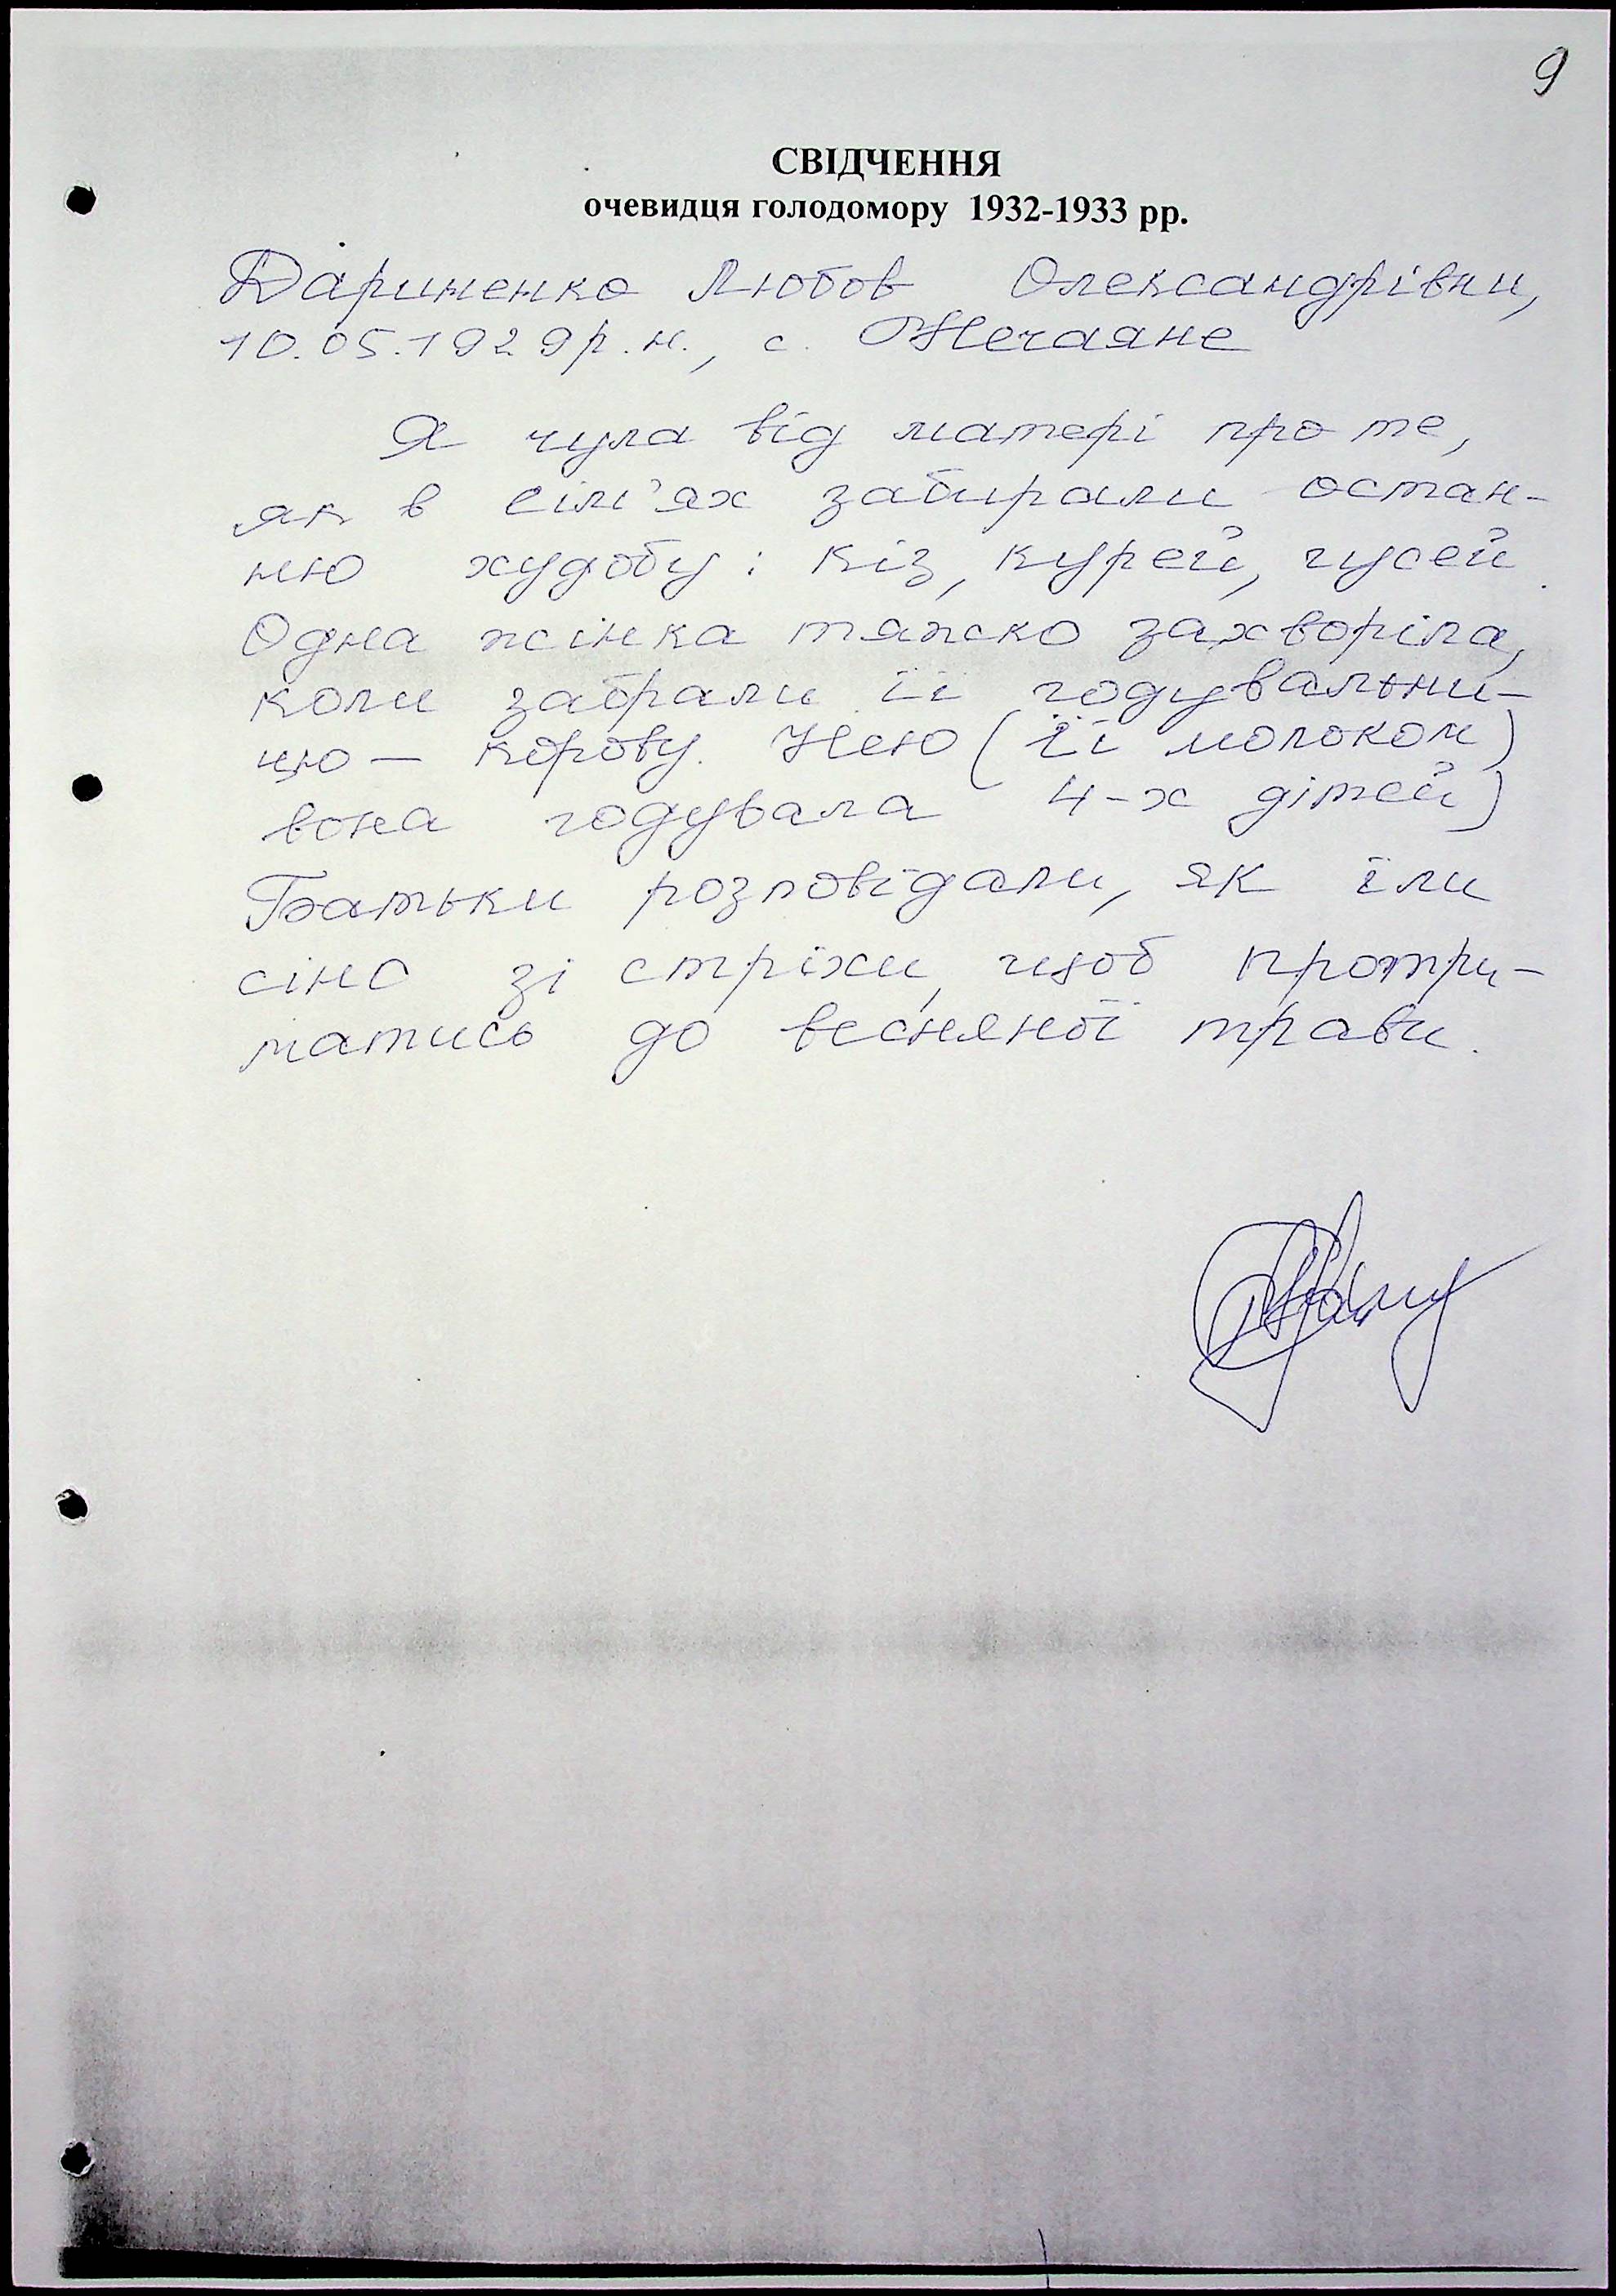 9
СВІДЧЕННЯ
очевидця голодомору 1932-1933 рр.
Дариненко Любов Олександрівни,
10.05.1929 р.н., с. Нечаяне
Я чула від матері про те,
як в сім'ях забирали остан-
ню худобу: кіз, курей, гусей.
Одна жінка тяжко захворіла,
коли забрали її годувальни-
цю – корову. Нею (її молоком)
вона годувала 4-х дітей)
Батьки розповідали, як їли
сіно зі стріхи, щоб протри-
матись до весняної трави.